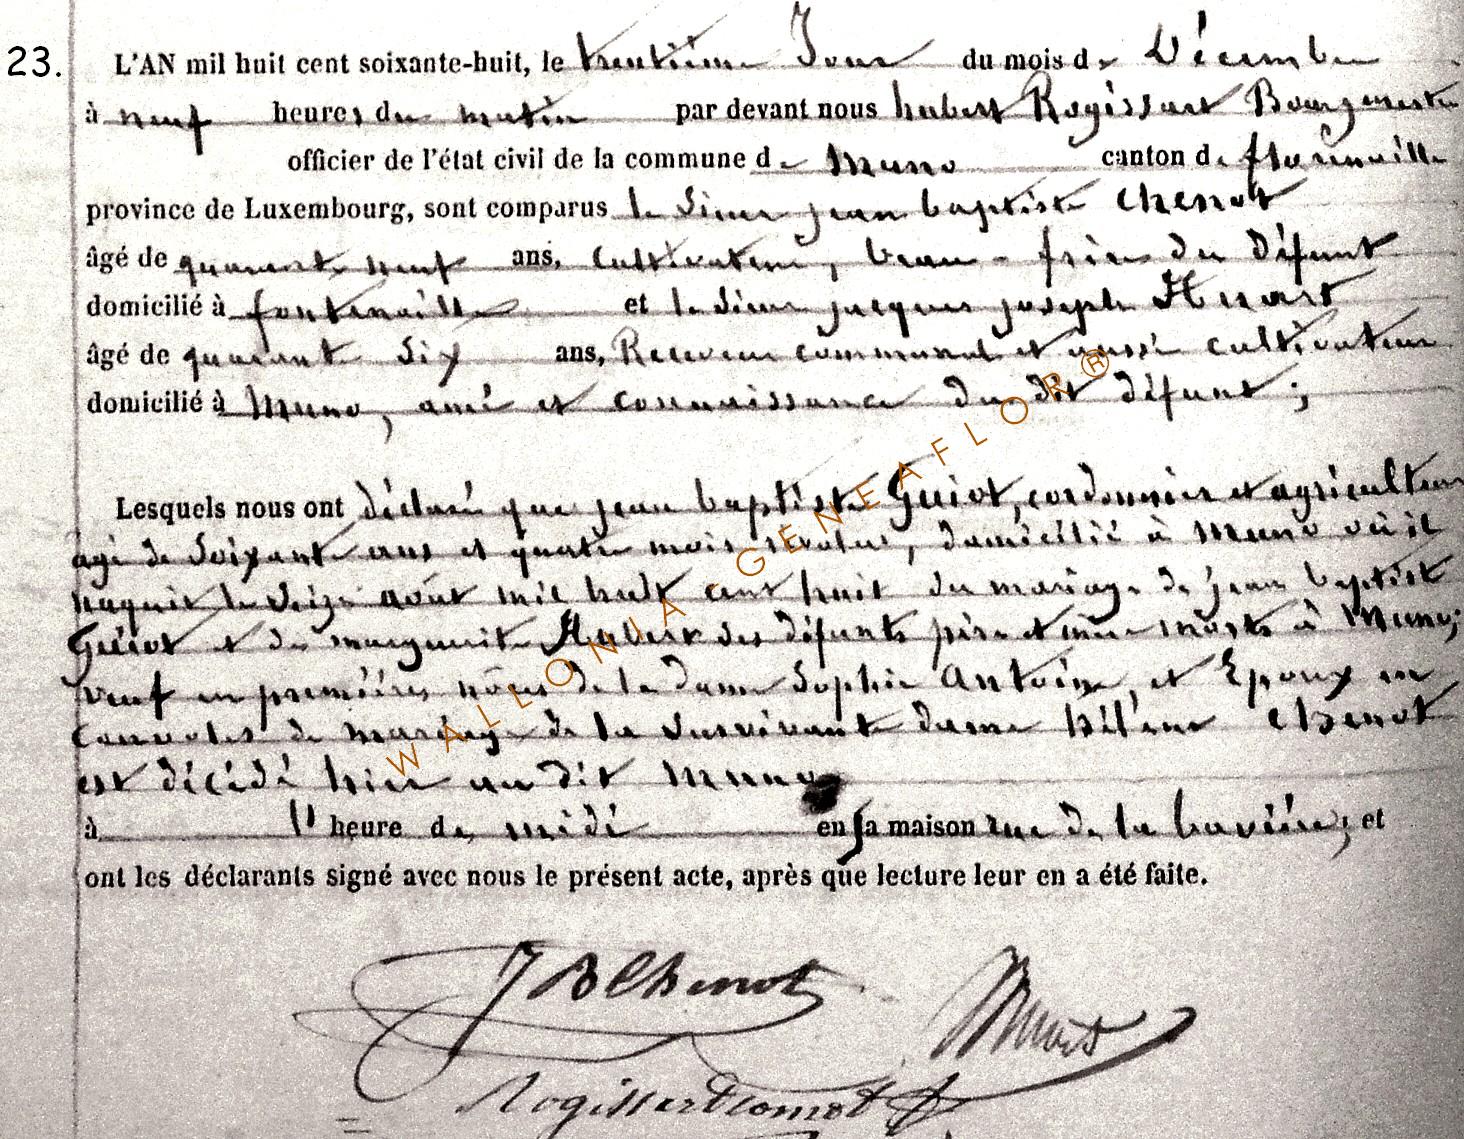 23.
L'AN mil huit cent soixante-huit, le trentième Jour du mois de Décembre
à neuf heures du matin par devant nous hubert Rogissart Bourgmestre
officier de l'état civil de la commune de Muno canton de florenville
province de Luxembourg, sont comparus le Sieur jean baptiste Chenot
âgé de quarante neuf ans, Cultivateur, beau-frère du Défunt
domicilié à fontenoille et le Sieur jacques joseph Huart
âgé de quarante Six ans, Receveur communal et aussi cultivateur
domicilié à Muno, ami et connaissance du dit défunt;
Lesquels nous ont déclaré que jean baptiste Guiot, cordonnier et agriculteur
âgé de Soixante ans et quatre mois révolus, domicilié à Muno où il
naquit le Seize août mil huit cent huit du mariage de jean baptiste
Guiot et de marguerite Hubert des défunts père et mère morts à Muno;
veuf en premières nôces de la Dame Sophie Antoine, et Epoux en
Convoles de mariage de la Survivante dame hélène Chenot
est décédé hier au dit Muno
à l'heure de midi en sa maison rue de la bavière; et
ont les déclarants signé avec nous le présent acte, après que lecture leur en a été faite.
JB Chenot Huart
WALLONIA-GENEAFLOR®